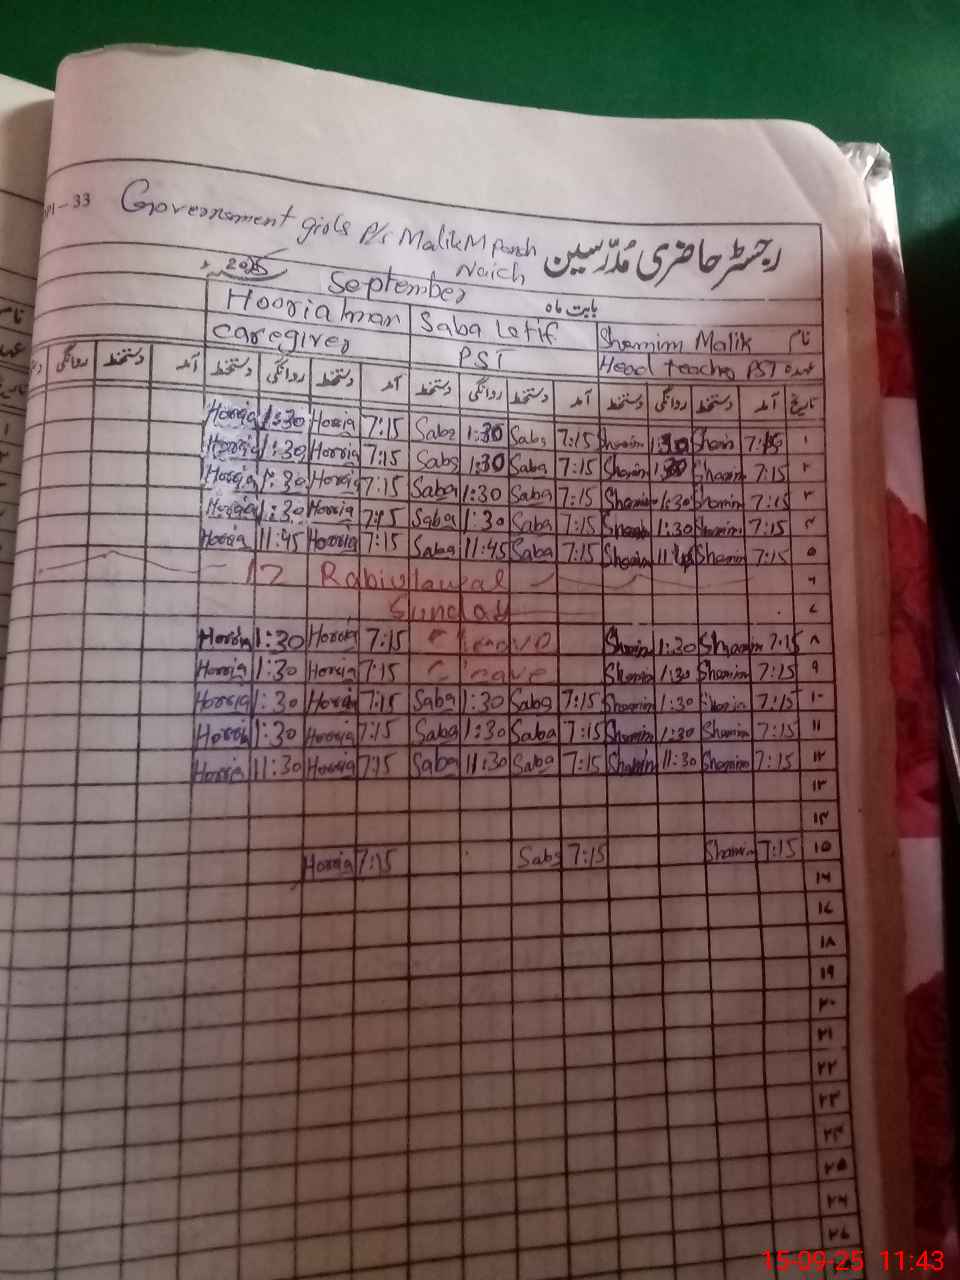 Government girls P/s Malik M Panah Naich
رجسٹر حاضری مُدرّسین
2025
September
بابت ماہ
Hooria Iman Saba Latif Shamim Malik نام
Caregiver PST Head teacher PST عہدہ
روانگی دستخط آمد دستخط روانگی دستخط آمد دستخط روانگی دستخط آمد دستخط روانگی دستخط آمد تاریخ
Horria 1:30 Horria 7:15 Saba 1:30 Saba 7:15 Shamim 1:30 Shamim 7:15 ۱
Horria 1:30 Horria 7:15 Saba 1:30 Saba 7:15 Shamim 1:30 Shamim 7:15 ۲
Horria 1:30 Horria 7:15 Saba 1:30 Saba 7:15 Shamim 1:30 Shamim 7:15 ۳
Horria 1:30 Horria 7:15 Saba 1:30 Saba 7:15 Shamim 1:30 Shamim 7:15 ۴
Horria 11:45 Horria 7:15 Saba 11:45 Saba 7:15 Shamim 11:45 Shamim 7:15 ۵
12 Rabiulawal ۶
Sunday ۷
Horria 1:30 Horria 7:15 C leave Shamim 1:30 Shamim 7:15 ۸
Horria 1:30 Horria 7:15 C leave Shamim 1:30 Shamim 7:15 ۹
Horria 1:30 Horria 7:15 Saba 1:30 Saba 7:15 Shamim 1:30 Shamim 7:15 ۱۰
Horria 1:30 Horria 7:15 Saba 1:30 Saba 7:15 Shamim 1:30 Shamim 7:15 ۱۱
Horria 11:30 Horria 7:15 Saba 11:30 Saba 7:15 Shamim 11:30 Shamim 7:15 ۱۲
۱۳
۱۴
Horria 7:15 Saba 7:15 Shamim 7:15 ۱۵
۱۶
۱۷
۱۸
۱۹
۲۰
۲۱
۲۲
۲۳
۲۴
۲۵
۲۶
۲۷
15-09-25 11:43